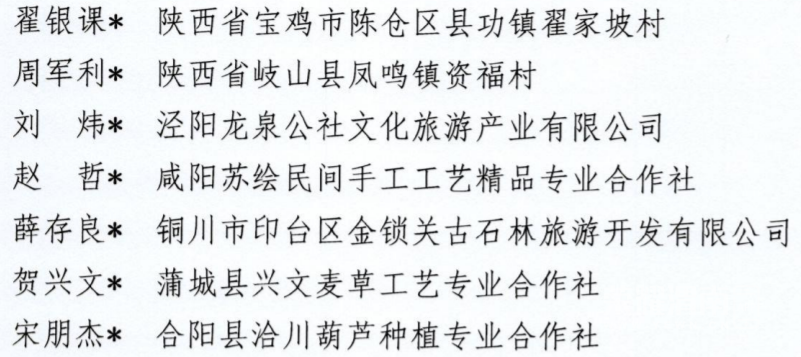 翟银课* 陕西省宝鸡市陈仓区县功镇翟家坡村
周军利* 陕西省岐山县凤鸣镇资福村
刘　炜* 泾阳龙泉公社文化旅游产业有限公司
赵　哲* 咸阳苏绘民间手工工艺精品专业合作社
薛存良* 铜川市印台区金锁关古石林旅游开发有限公司
贺兴文* 蒲城县兴文麦草工艺专业合作社
宋朋杰* 合阳县洽川葫芦种植专业合作社